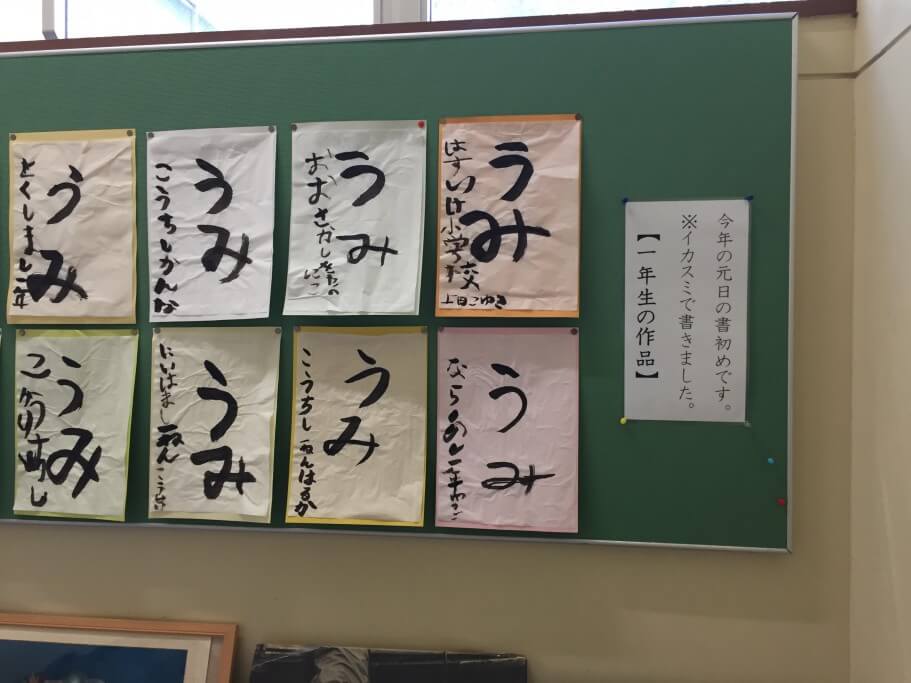 今年の元日の書初めです。
※イカスミで書きました。
【一年生の作品】
うみ
はすいけ小学校
上田こゆき
うみ
おおさかし
うみ
こうちしかんな
うみ
とくしまし一年
うみ
うみ
こうちし一ねんはるか
うみ
にいはまし一ねん
うみ